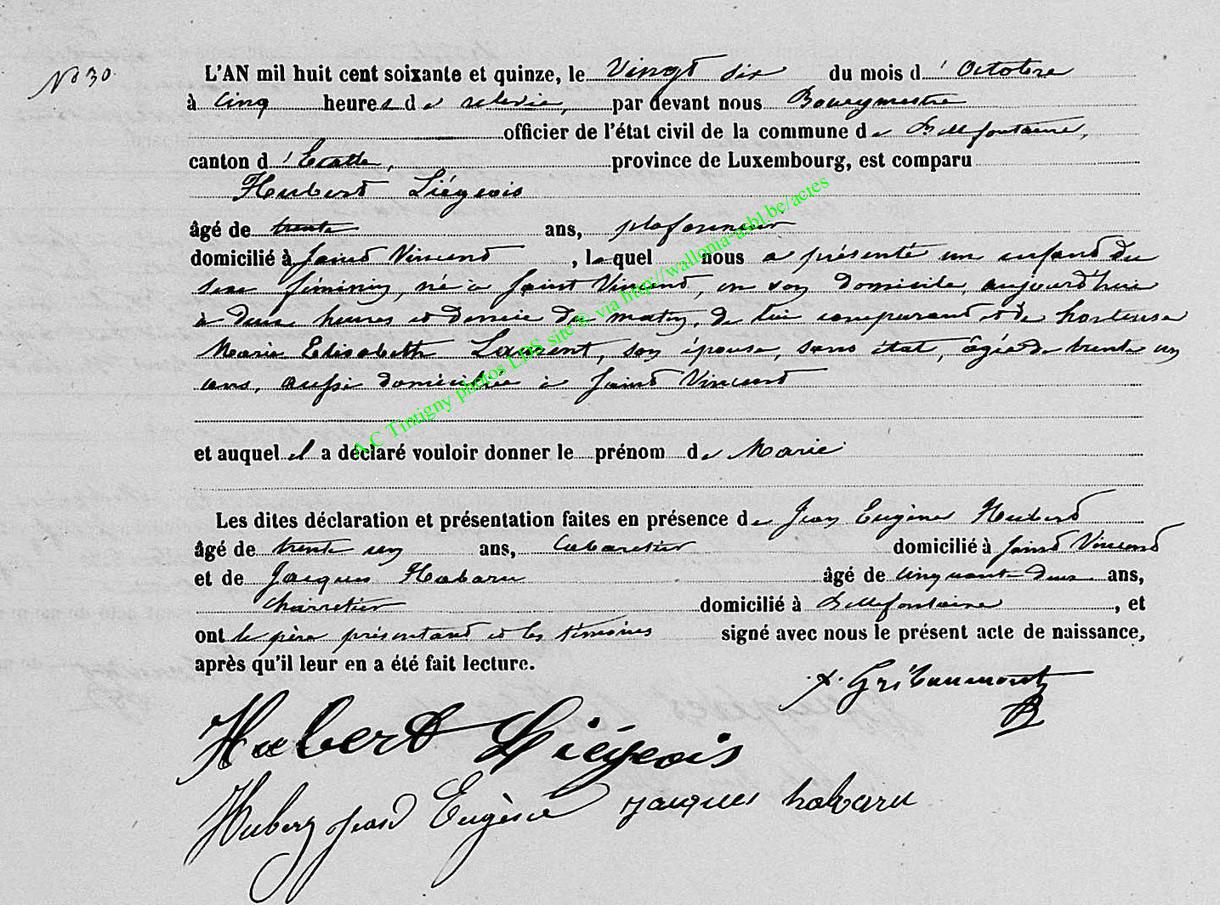 No 30
L'AN mil huit cent soixante et quinze, le Vingt six du mois d' Octobre
à Cinq heures de relevée, par devant nous Bourgmestre
officier de l'état civil de la commune de Bellefontaine,
canton d' Etalle, province de Luxembourg, est comparu
Hubert Liégeois
âgé de trente ans, plafonneur
domicilié à Saint Vincent, lequel nous a présenté un enfant du
sexe féminin, né à Saint Vincent, en son domicile, aujourd'hui
à deux heures et demie du matin, de lui comparant et de
Marie Elisabeth Laurent, son épouse, sans état, âgée de trente un
ans, aussi domiciliée à Saint Vincent
et auquel il a déclaré vouloir donner le prénom de Marie
Les dites déclaration et présentation faites en présence de Jean Eugène Hubert
âgé de trente un ans, Cabaretier domicilié à Saint Vincent
et de Jacques Habaru âgé de cinquante deux ans,
Charretier domicilié à Bellefontaine, et
ont le père présentant et les témoins signé avec nous le présent acte de naissance,
après qu'il leur en a été fait lecture.
Gribaumont
Hubert Liégeois
Hubert jean Eugène jacques habaru
A.C Tintigny photos LDS site © via http://wallonia-asbl.be/actes